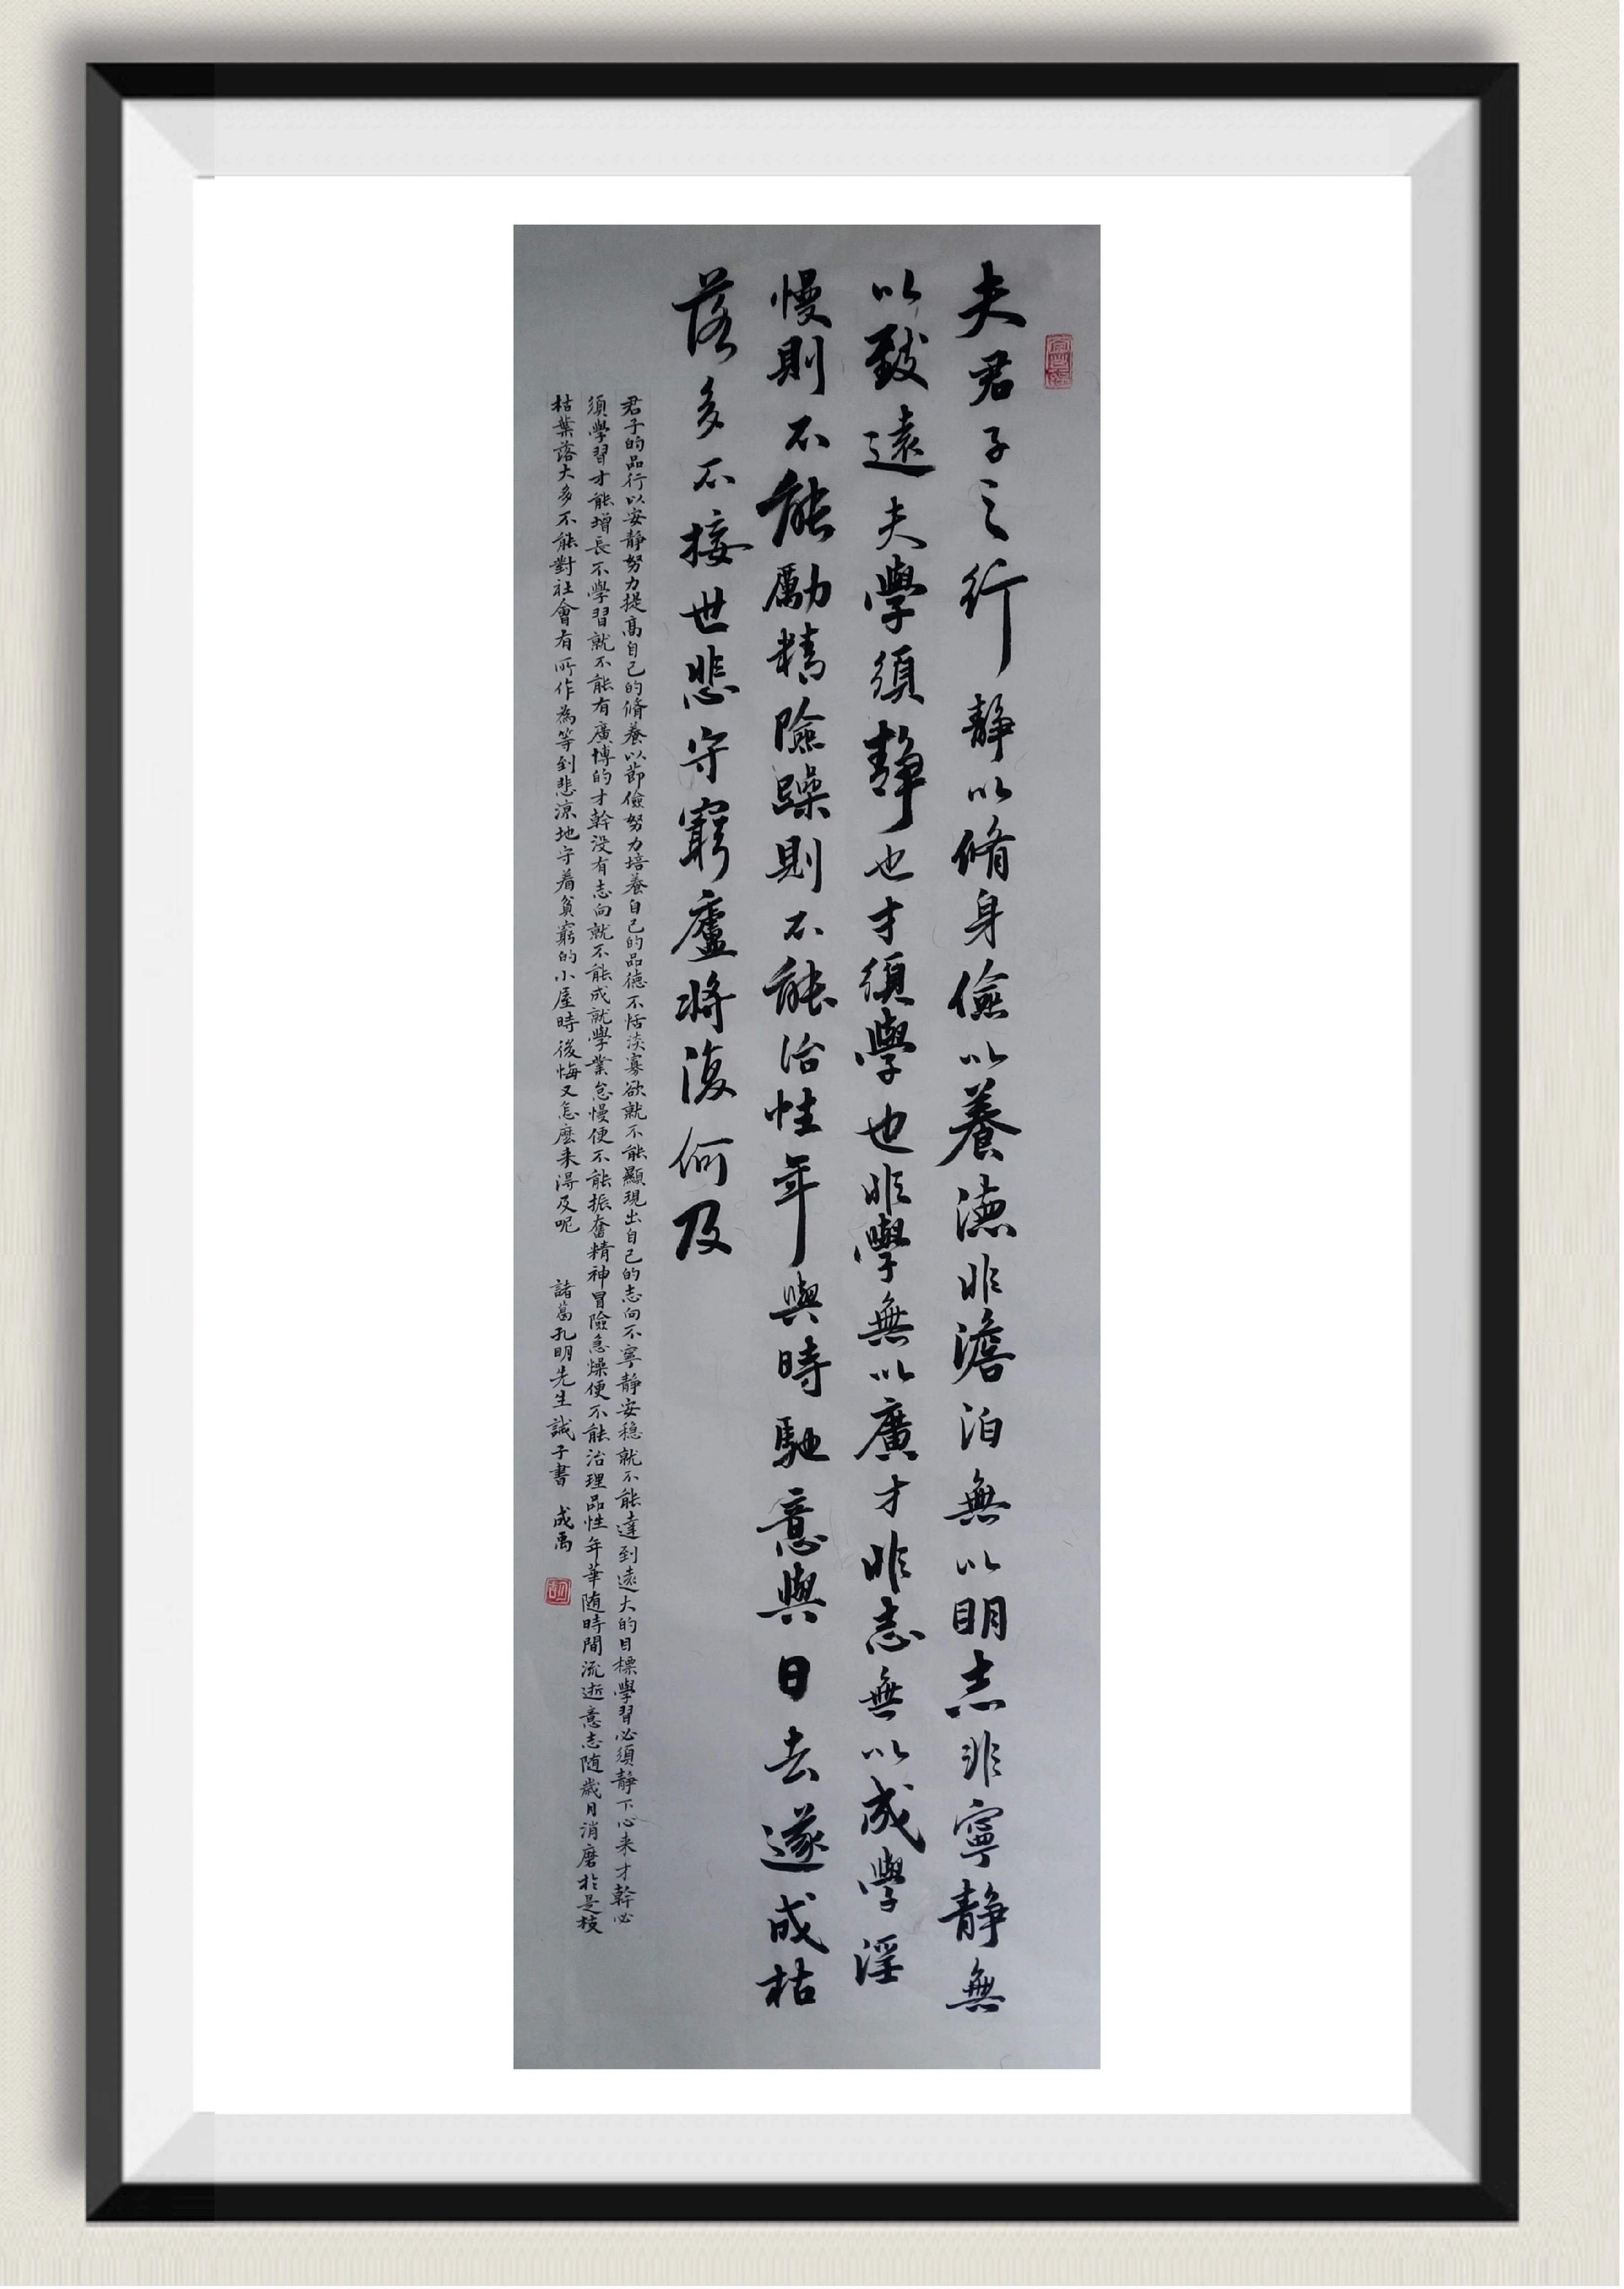 夫君子之行靜以脩身儉以養德非澹泊無以明志非寧靜無
以致遠夫學須靜也才須學也非學無以廣才非志無以成學淫
慢則不能勵精險躁則不能治性年與時馳意與日去遂成枯
落多不接世悲守窮廬將復何及
君子的品行以安靜努力提高自己的脩養以節儉努力培養自己的品德不恬淡寡欲就不能顯現出自己的志向不寧靜安穩就不能達到遠大的目標學習必須靜下心来才幹必
須學習才能增長不學習就不能有廣博的才幹没有志向就不能成就學業怠慢便不能振奮精神冒險急燥便不能治理品性年華随時間流逝意志随歲月消磨於是枝
枯葉落大多不能對社會有所作為等到悲涼地守着貧窮的小屋時後悔又怎麼来得及呢 諸葛孔明先生誡子書 成禹